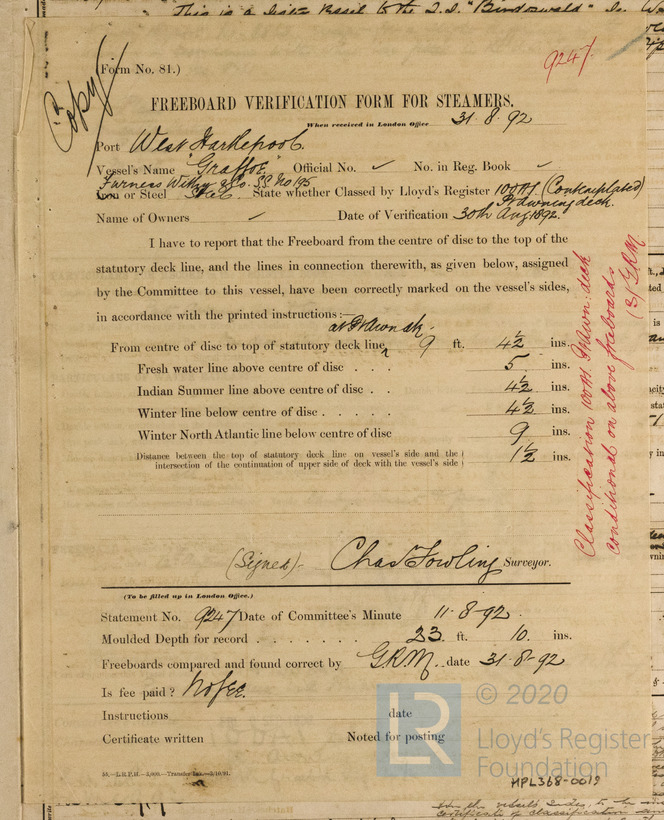 This is a Sister Vessel to the S.S. "Bindoswald"
9247
Form No. 81.)
Copy
FREEBOARD VERIFICATION FORM FOR STEAMERS.
When received in London Office 31·8·92
Port West Hartlepool.
Vessel's Name "Graffoe" Official No. ✓ No. in Reg. Book ✓
Furness Withy & Co. S.S. No 195
Iron or Steel Steel State whether Classed by Lloyd's Register 100A1 (Contemplated)
Pt Awning deck.
Name of Owners ✓ Date of Verification 30th Aug 1892.
I have to report that the Freeboard from the centre of disc to the top of the
statutory deck line, and the lines in connection therewith, as given below, assigned
by the Committee to this vessel, have been correctly marked on the vessel's sides,
in accordance with the printed instructions:—
at Pt Awn dk.
From centre of disc to top of statutory deck line 9 ft. 4½ ins.
Fresh water line above centre of disc . . . 5 ins.
Indian Summer line above centre of disc . . 4½ ins.
Winter line below centre of disc . . . . . 4½ ins.
Winter North Atlantic line below centre of disc 9 ins.
Distance between the top of statutory deck line on vessel's side and the
intersection of the continuation of upper side of deck with the vessel's side 1½ ins.
Classification 100A1 Pt Awn. deck
conditional on above freeboards
(s) GRM
(Signed)- Chas Fowling Surveyor.
(To be filled up in London Office.)
Statement No. 9247 Date of Committee's Minute 11·8·92.
Moulded Depth for record . . . . . . . 23 ft. 10. ins.
Freeboards compared and found correct by GRM. date 31·8·92
Is fee paid? No fee.
Instructions date
Certificate written Noted for posting
LR
© 2020
Lloyd's Register
Foundation
HPL368-0019